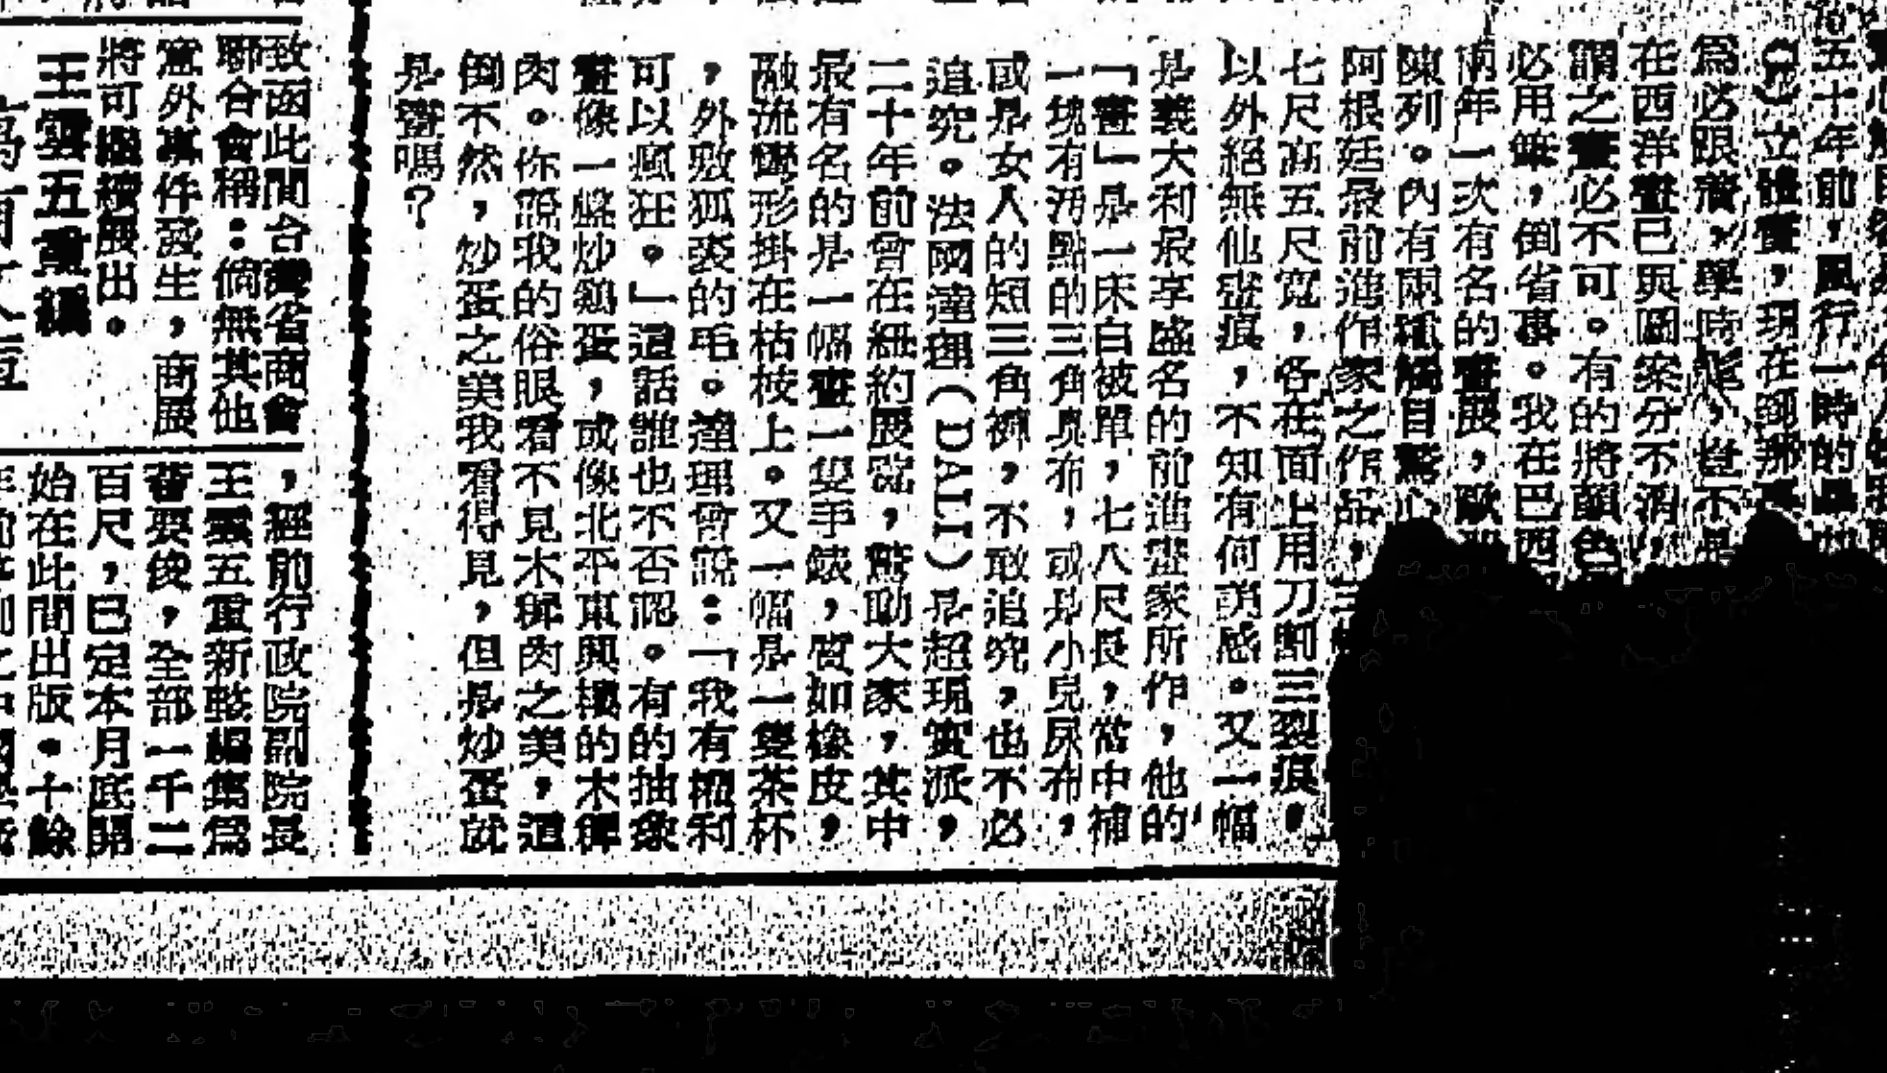 五十年前，風行一時的
）立體畫，現在到
為必眼
在西洋畫已與圖案分不清，
謂之畫必不可。有的將顏色
必用筆，倒省事。我在巴西
兩年一次有名的畫展，歐
陳列。內有兩
阿根廷最前進作家之作品，三
七尺高五尺寬，各在面上用刀割三裂痕，
以外絕無他畫痕，不知有何誚感。又一幅
是義大利最享盛名的前進畫家所作，他的
「畫」是一床白被單，七八尺長，當中補
一塊有污點的三角臭布，或是小兒尿布，
或是女人的短三角褲，不敢追究，也不必
追究。法國達理（DALI）是超現實派，
二十年前曾在紐約展覽，驚動大家，其中
最有名的是一幅畫一隻手錶，質如橡皮，
融流變形掛在枯枝上。又一幅是一雙茶杯
，外敷狐裘的毛。達理曾說：「我有權利
可以瘋狂。」這話誰也不否認。有的抽象
畫像一盤炒鷄蛋，或像北平東興樓的木穉
肉。你說我的俗眼看不見木穉肉之美，這
倒不然，炒蛋之美我看得見，但是炒蛋就
是畫嗎？
致函此間台灣省商會
聯合會稱：倘無其他
意外事件發生，商展
將可繼續展出。
王雲五重編
，經前行政院副院長
王雲五重新整編集為
薈要後，全部一千二
百尺，已定本月底開
始在此間出版。十餘